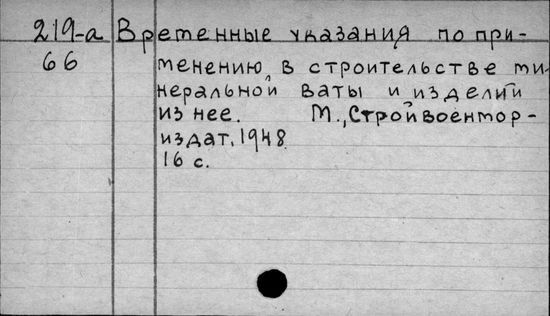 219-а Временные указания по при-
66 менению в строительстве ми-
неральной ваты и изделий
из нее. М., Стройвоентор-
издат, 1948
16 с.